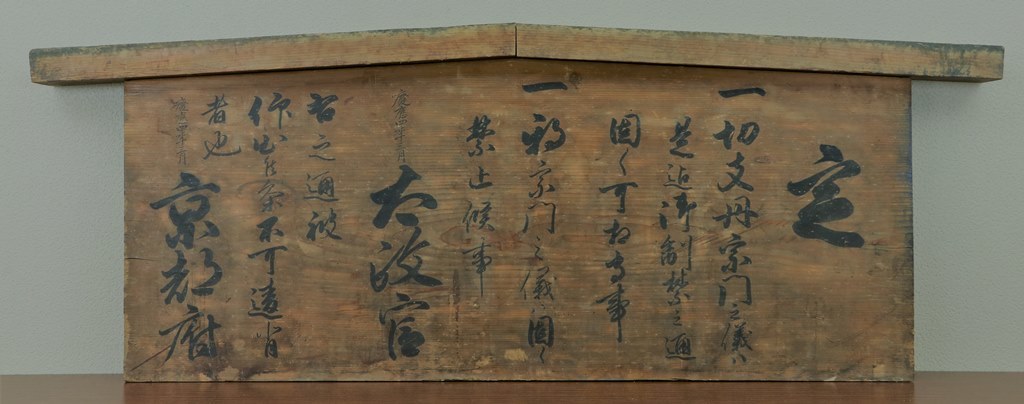 定
一切支丹宗門之儀ハ
是迄御制禁之通
固く可相守事
一邪宗門之儀ハ固く
禁止候事
慶応四年三月
太政官
右之通被
仰出候条不可違背
者也
京都府